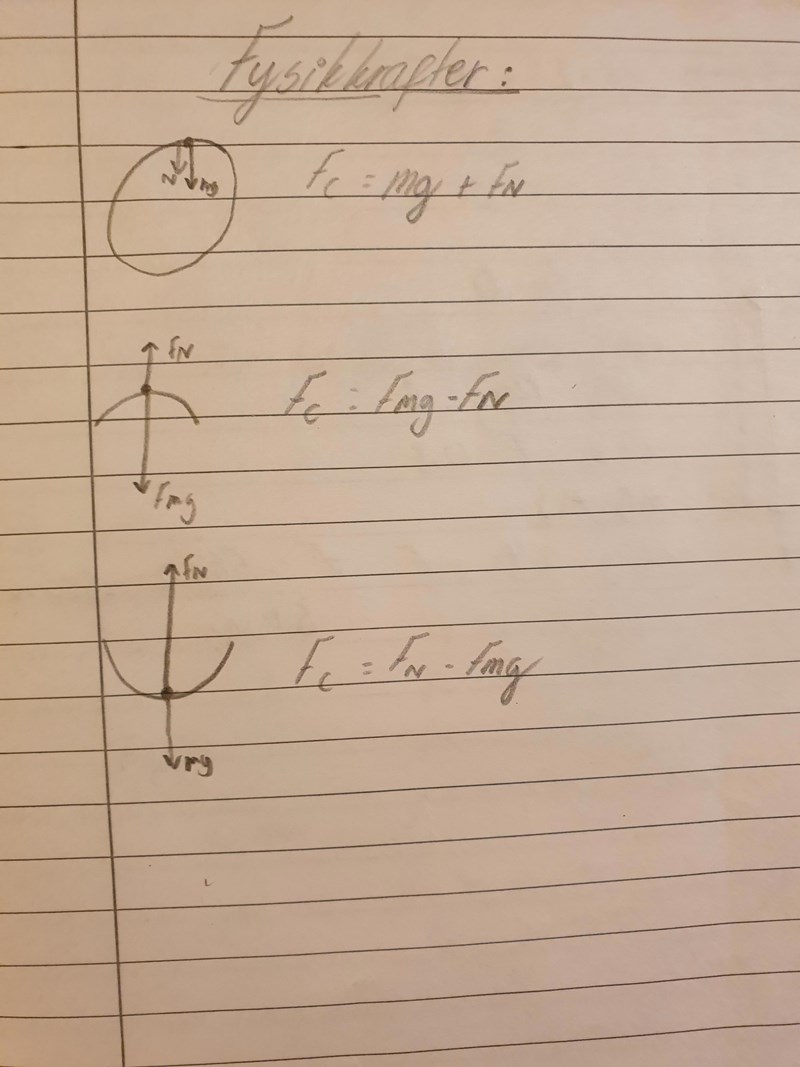 Fysikkrafter:
N mg
Fc = mg + FN
FN
Fc = Fmg - FN
Fmg
FN
Fc = FN - Fmg
mg